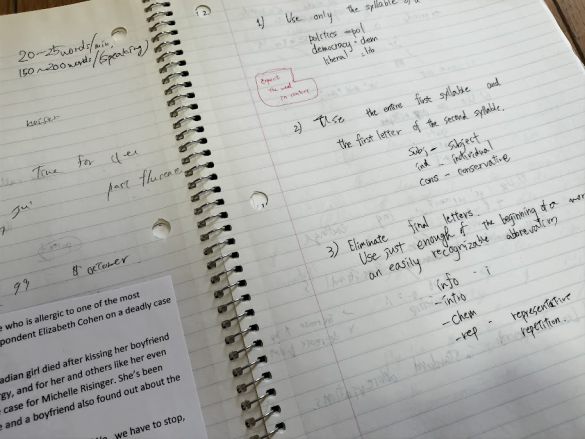 20-25 words/min.
150~200 words/(speaking)
Time for
past
99 8 october
e who is allergic to one of the most
pondent Elizabeth Cohen on a deadly case
adian girl died after kissing her boyfriend
gy, and for her and others like her even
case for Michelle Risinger. She's been
e and a boyfriend also found out about the
we have to stop,
1) Use only the syllable of a
politics - pol
democracy - dem
liberal - lib
the word
in context
2) Use the entire first syllable and
the first letter of the second syllable.
subj - subject
ind - individual
cons - conservative
3) Eliminate final letters.
Use just enough of the beginning of a
an easily recognizable abbreviation
info - i
- intro
- chem
- rep - representative
repetition